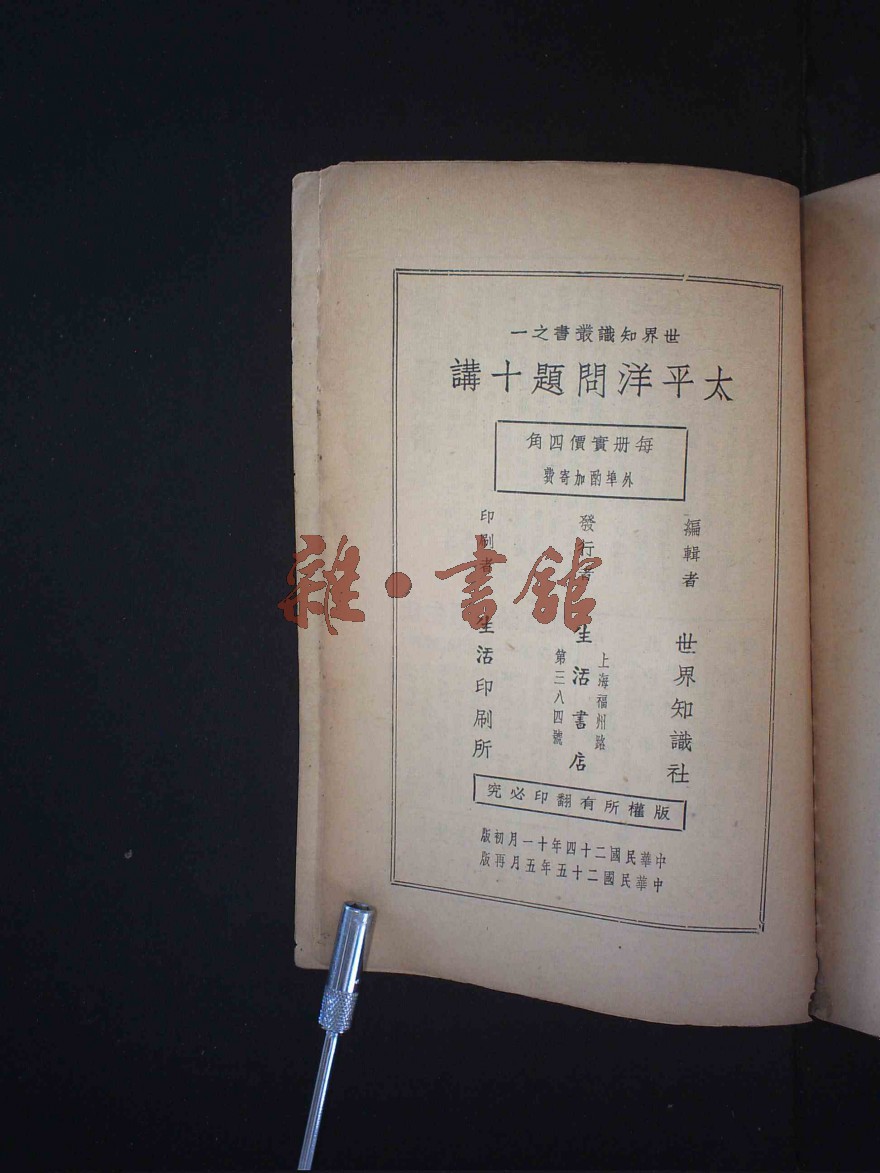 世界知識叢書之一
太平洋問題十講
每册實價四角
外埠酌加寄費
編輯者 世界知識社
發行者 生活書店
上海福州路
第三八四號
印刷者 生活印刷所
版權所有翻印必究
中華民國二十四年十一月初版
中華民國二十五年五月再版
雜·書館